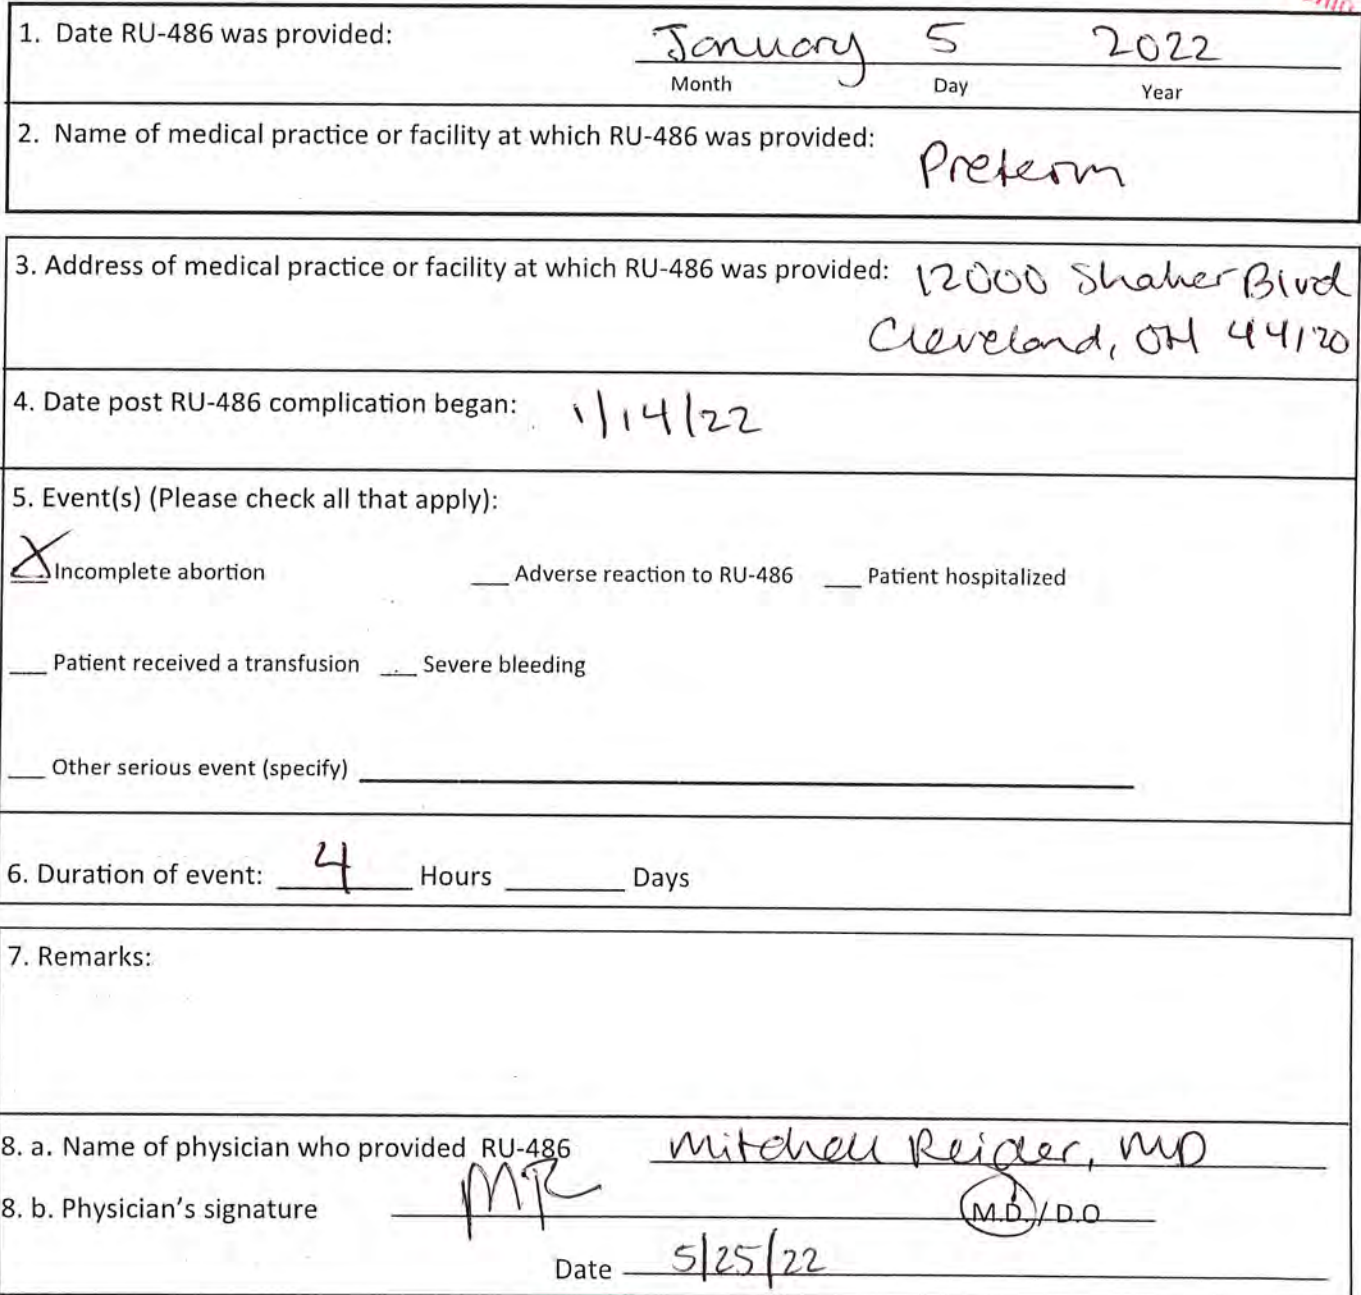 1. Date RU-486 was provided: January 5 2022
Month Day Year
2. Name of medical practice or facility at which RU-486 was provided: Preterm
3. Address of medical practice or facility at which RU-486 was provided: 12000 Shaker Blvd
Cleveland, OH 44120
4. Date post RU-486 complication began: 1/14/22
5. Event(s) (Please check all that apply):
X Incomplete abortion ___ Adverse reaction to RU-486 ___ Patient hospitalized
___ Patient received a transfusion ___ Severe bleeding
___ Other serious event (specify) ___
6. Duration of event: 4 Hours ___ Days
7. Remarks:
8. a. Name of physician who provided RU-486 Mitchell Reider, MD
8. b. Physician's signature MR M.D./D.O
Date 5/25/22